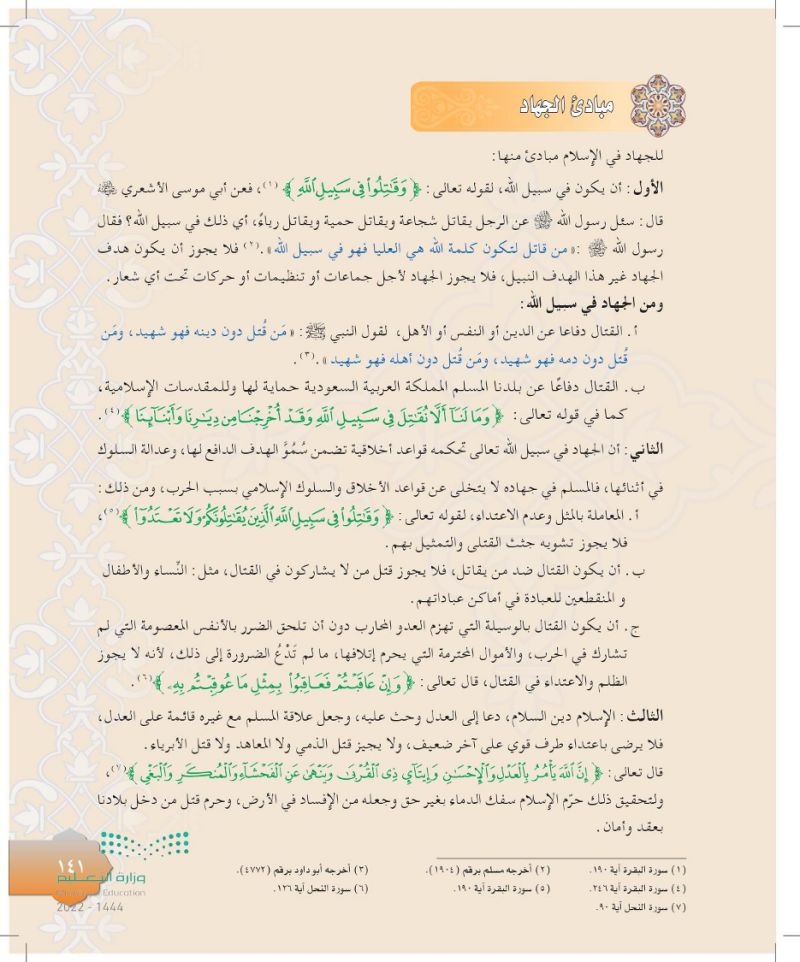 مبادئ الجهاد
للجهاد في الإسلام مبادئ منها:
الأول: أن يكون في سبيل الله، لقوله تعالى: ﴿ وَقَٰتِلُواْ فِي سَبِيلِ ٱللَّهِ ﴾ (١)، فعن أبي موسى الأشعري ﵁
قال: سئل رسول الله ﷺ عن الرجل يقاتل شجاعة ويقاتل حمية ويقاتل رياءً، أي ذلك في سبيل الله؟ فقال
رسول الله ﷺ :«من قاتل لتكون كلمة الله هي العليا فهو في سبيل الله».(٢) فلا يجوز أن يكون هدف
الجهاد غير هذا الهدف النبيل، فلا يجوز الجهاد لأجل جماعات أو تنظيمات أو حركات تحت أي شعار.
ومن الجهاد في سبيل الله:
أ. القتال دفاعا عن الدين أو النفس أو الأهل، لقول النبي ﷺ: «مَن قُتل دون دينه فهو شهيد، ومَن
قُتل دون دمه فهو شهيد، ومَن قُتل دون أهله فهو شهيد».(٣).
ب. القتال دفاعًا عن بلدنا المسلم المملكة العربية السعودية حماية لها وللمقدسات الإسلامية،
كما في قوله تعالى: ﴿ وَمَا لَنَآ أَلَّا نُقَٰتِلَ فِي سَبِيلِ ٱللَّهِ وَقَدۡ أُخۡرِجۡنَا مِن دِيَٰرِنَا وَأَبۡنَآئِنَا ﴾(٤).
الثاني: أن الجهاد في سبيل الله تعالى تحكمه قواعد أخلاقية تضمن سُمُوَّ الهدف الدافع لها، وعدالة السلوك
في أثنائها، فالمسلم في جهاده لا يتخلى عن قواعد الأخلاق والسلوك الإسلامي بسبب الحرب، ومن ذلك:
أ. المعاملة بالمثل وعدم الاعتداء، لقوله تعالى: ﴿ وَقَٰتِلُواْ فِي سَبِيلِ ٱللَّهِ ٱلَّذِينَ يُقَٰتِلُونَكُمۡ وَلَا تَعۡتَدُوٓاْ ﴾(٥)،
فلا يجوز تشويه جثث القتلى والتمثيل بهم.
ب. أن يكون القتال ضد من يقاتل، فلا يجوز قتل من لا يشاركون في القتال، مثل: النِّساء والأطفال
و المنقطعين للعبادة في أماكن عباداتهم.
ج. أن يكون القتال بالوسيلة التي تهزم العدو المحارب دون أن تلحق الضرر بالأنفس المعصومة التي لم
تشارك في الحرب، والأموال المحترمة التي يحرم إتلافها، ما لم تَدْعُ الضرورة إلى ذلك، لأنه لا يجوز
الظلم والاعتداء في القتال، قال تعالى: ﴿ وَإِنۡ عَاقَبۡتُمۡ فَعَاقِبُواْ بِمِثۡلِ مَا عُوقِبۡتُم بِهِۦ ﴾(٦).
الثالث: الإسلام دين السلام، دعا إلى العدل وحث عليه، وجعل علاقة المسلم مع غيره قائمة على العدل،
فلا يرضى باعتداء طرف قوي على آخر ضعيف، ولا يجيز قتل الذمي ولا المعاهد ولا قتل الأبرياء.
قال تعالى: ﴿ إِنَّ ٱللَّهَ يَأۡمُرُ بِٱلۡعَدۡلِ وَٱلۡإِحۡسَٰنِ وَإِيتَآيِٕ ذِي ٱلۡقُرۡبَىٰ وَيَنۡهَىٰ عَنِ ٱلۡفَحۡشَآءِ وَٱلۡمُنكَرِ وَٱلۡبَغۡيِ ﴾(٧)،
ولتحقيق ذلك حرّم الإسلام سفك الدماء بغير حق وجعله من الإفساد في الأرض، وحرم قتل من دخل بلادنا
بعقد وأمان.
(١) سورة البقرة آية ١٩٠. (٢) أخرجه مسلم برقم (١٩٠٤). (٣) أخرجه أبو داود برقم (٤٧٧٢).
(٤) سورة البقرة آية ٢٤٦. (٥) سورة البقرة آية ١٩٠. (٦) سورة النحل آية ١٢٦.
(٧) سورة النحل آية ٩٠.
١٤١
وزارة التعليم
Ministry of Education
2022 - 1444